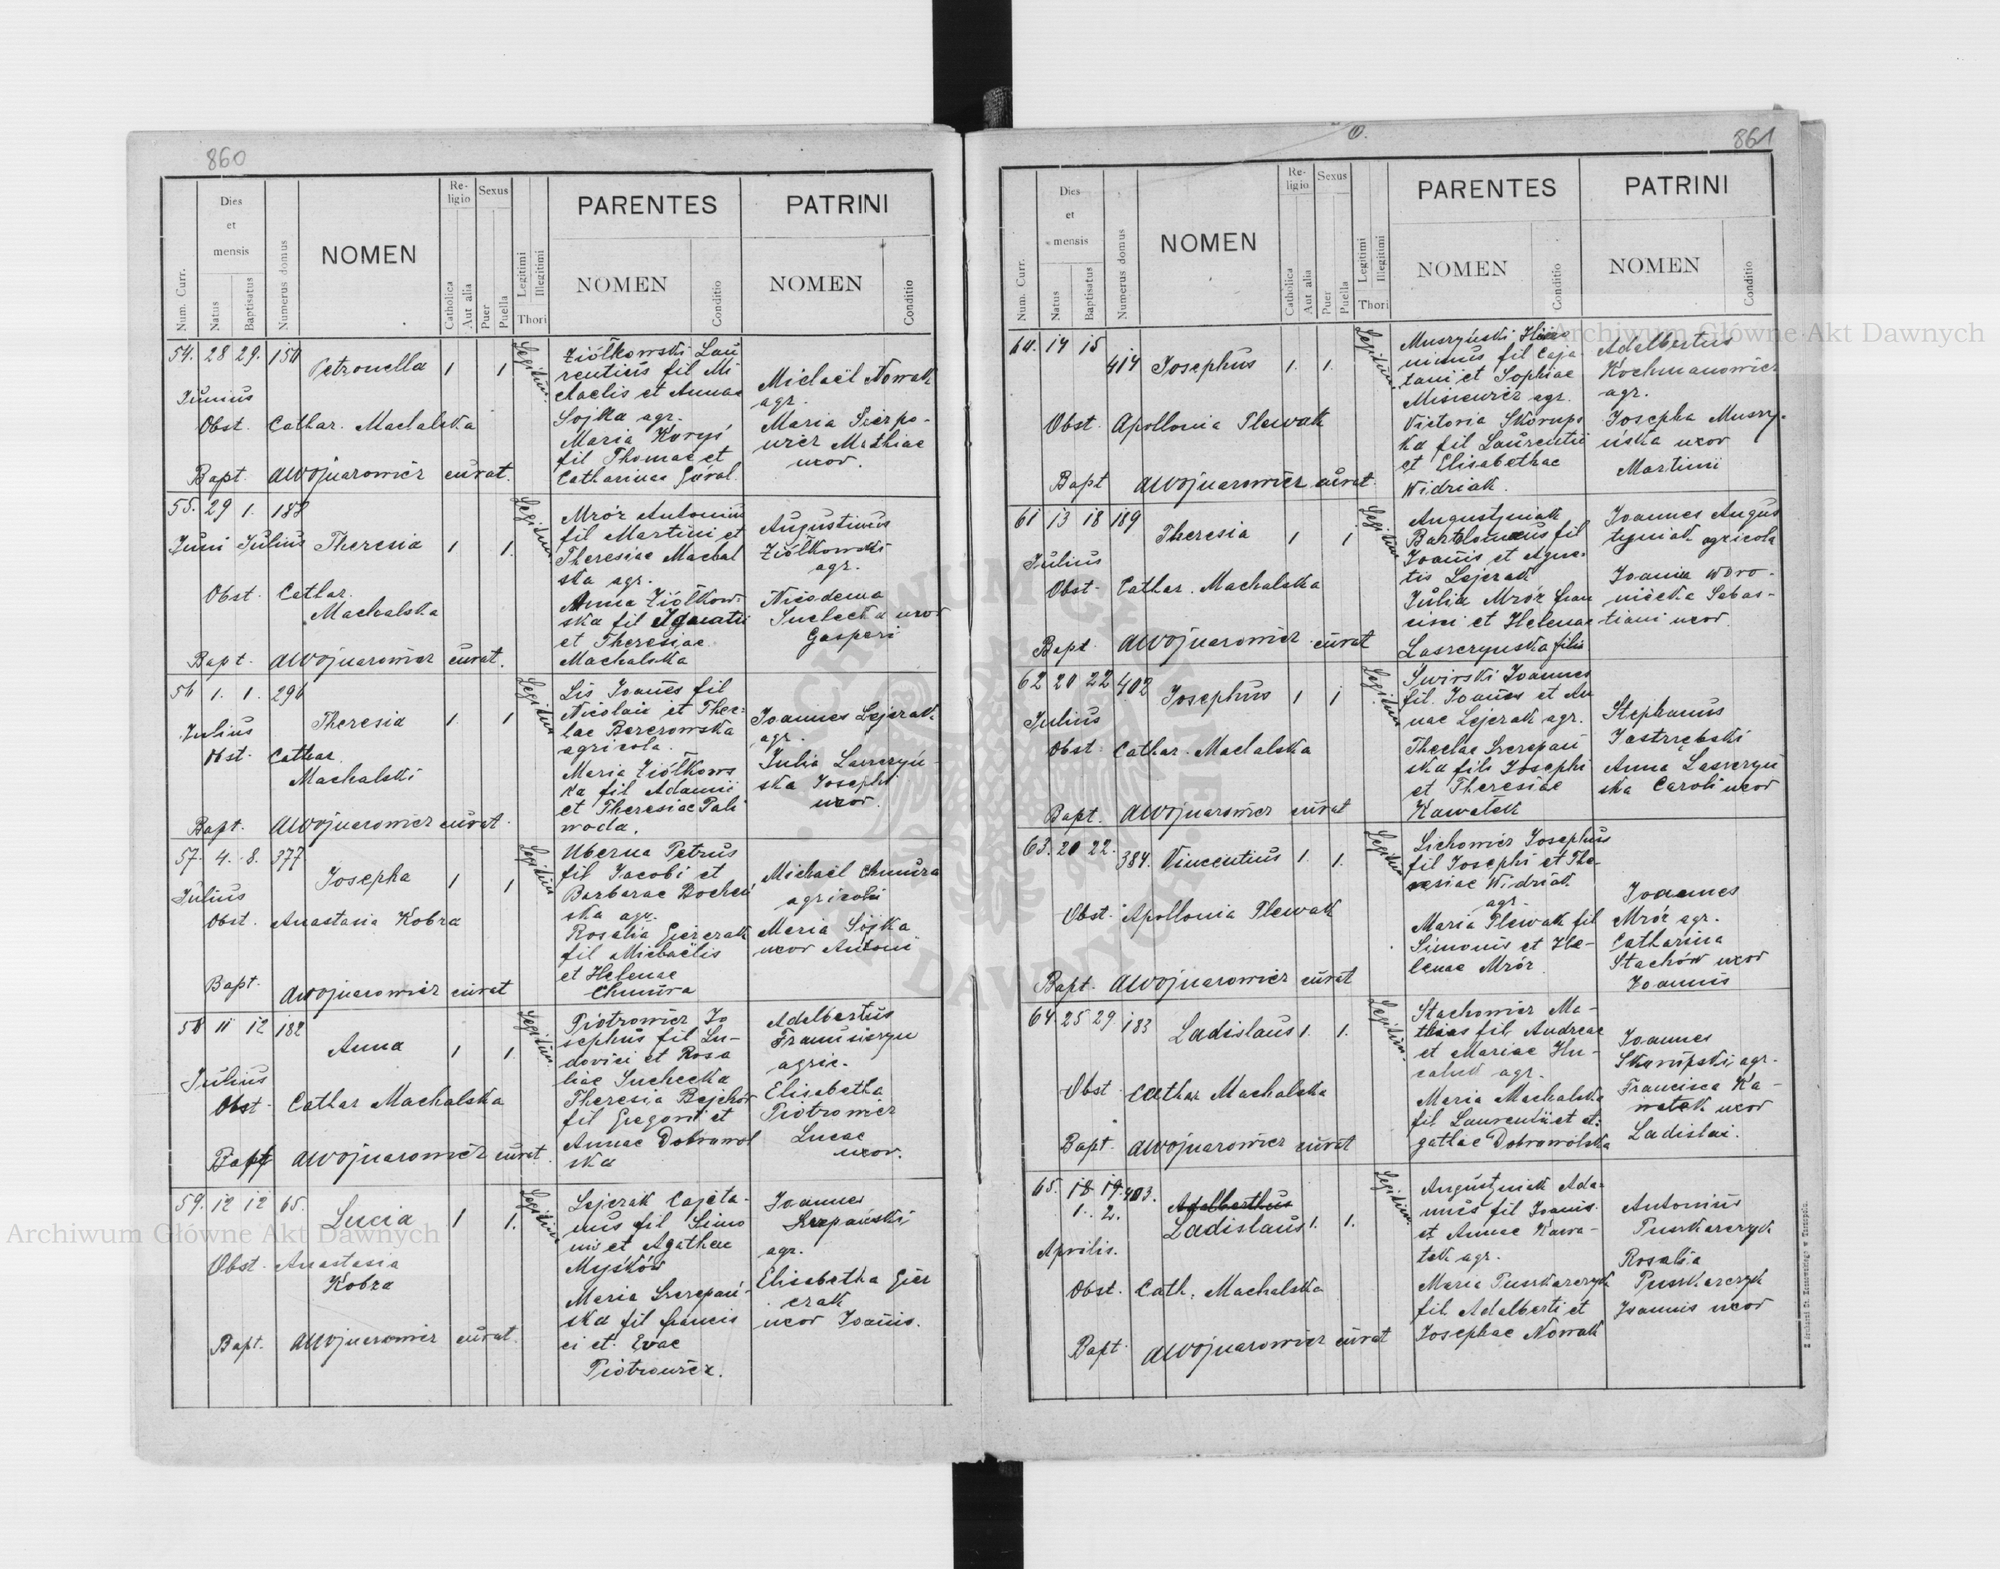 860
Num. Curr.
Dies et mensis
Natus
Baptisatus
Numerus domus
NOMEN
Religio
Catholica
Aut alia
Sexus
Puer
Puella
Legitimi
Illegitimi
Thori
PARENTES
NOMEN
Conditio
PATRINI
NOMEN
Conditio
54. 28 29. 150 Petronella 1 1 Legitim.
Junius
Obst. Cathar. Machalska
Bapt. AWojnarowicz curat.
Ziółkowski Lau
rentius fil Mi
chaelis et Annae
Sojka agr.
Maria Koryś
fil Thomae et
Catharinae Góral
Michaël Nowak
agr.
Maria Szerpo-
wicz Mathiae
uxor.
55. 29 1. 188
Juni Julius Theresia 1 1. Legitim
Obst. Cathar.
Machalska
Bapt. AWojnarowicz curat.
Mróz Antonius
fil Martini et
Theresiae Machal
ska agr.
Anna Ziółkow-
ska fil Ignatii
et Theresiae
Machalska
Augustinus
Ziółkowski
agr.
Nicodema
Suchecka uxor
Gasperi
56 1. 1. 296
Julius Theresia 1 1 Legitim
Obst. Cathar.
Machalski
Bapt. AWojnarowicz curat.
Lis Joañes fil
Nicolai et Thec-
lae Barczowska
agricola.
Maria Ziółkows
ka fil Adamii
et Theresiae Pali
woda.
Joannes Lejczak
agr.
Julia Laszczyń-
ska Josephi
uxor.
57. 4. 8. 377
Josepha 1 1 Legitim
Julius
Obst. Anastasia Kobza
Bapt. AWojnarowicz curat
Uberna Petrus
fil Jacobi et
Barbarae Bocheń
ska agr.
Rosalia Gierczak
fil Michaëlis
et Helenae
Chmura
Michaël Chmura
agricola
Maria Sojka
uxor Antoni
58 11 12 182
Anna 1 1. Legitim.
Julius
Obst. Cathar Machalska
Bapt AWojnarowicz curat.
Piotrowicz Jo
sephus fil Lu-
dovici et Rosa
liae Suchecka
Theresia Bejchór
fil Gregorii et
Annae Dobrowol
ska
Adalbertus
Franusiczyn
agric.
Elisabetha
Piotrowicz
Lucae
uxor.
59. 12 12 65.
Lucia 1 1. Legitim
Obst. Anastasia
Kobza
Bapt. AWojnarowicz curat.
Lejczak Cajeta-
nus fil Simo
nis et Agathae
Myśków
Maria Szczepań-
ska fil Francis
ci et Evae
Piotrowicz.
Joannes
Szczepański
agr.
Elisabetha Gier
czak
uxor Joañis.
861
Num. Curr.
Dies et mensis
Natus
Baptisatus
Numerus domus
NOMEN
Religio
Catholica
Aut alia
Sexus
Puer
Puella
Legitimi
Illegitimi
Thori
PARENTES
NOMEN
Conditio
PATRINI
NOMEN
Conditio
60. 14 15
414 Josephus 1. 1. Legitim
Obst. Apollonia Plewak
Bapt AWojnarowicz curat.
nimus fil Caja-
tani et Sophiae
Misiewicz agr.
Victoria Skorups
ka fil Laurentii
et Elisabethae
Widriak.
Adalbertus
Kochmanowicz
agr.
Josepha Muszy-
ńska uxor
Martini
61 13 18 189
Theresia 1 1 Legitim
Julius
Obst. Cathar. Machalska
Bapt. AWojnarowicz curat
Augustyniak
Bartolomaeus fil
Joañis et Agne-
tis Lejczak
Julia Mróz Fran
cisci et Helenae
Laszczynska filia
Joannes Augus
tyniak agricola
Joanna Woro-
niecka Sebas-
tiani uxor
62 20 22 402
Josephus 1 1 Legitim
Julius
Obst. Cathar. Machalska
Bapt. AWojnarowicz curat
Świrski Joannes
fil. Joañes et An
nae Lejczak agr.
Theclae Szczepań
ska fils Josephi
et Theresiae
Kawałek
Stephanus
Jastrzębski
Anna Laszczyń
ska Caroli uxor
63. 20 22. 384. Vincentius 1. 1. Legitim
Obst. Apollonia Plewak
Bapt. AWojnarowicz curat
Lichowicz Josephus
fil Josephi et The-
resiae Widriak
agr.
Maria Plewak fil
Simonis et He-
lenae Mróz
Joannes
Mróz agr.
Catharina
Stachów uxor
Joannis
64. 25 29. 183
Ladislaus 1. 1. Legitim.
Obst. Cathar Machalska
Bapt. AWojnarowicz curat
Stachowicz Ma-
thias fil Andreae
et Mariae Hu-
caluk agr.
Maria Machalska
fil Laurentii et A-
gathae Dobrowolska
Joannes
Skorupski agr.
Francisca Ka-
watek uxor
Ladislai.
65. 18 19. 403.
1. 2. Adalberthus
Ladislaus 1. 1. Legitim.
Aprilis.
Obst. Cath. Machalska
Bapt. AWojnarowicz curat
Augustyniak Ada-
mus fil Joanis.
et Annae Kawa-
tek agr.
Maria Puszkarczyk
fil. Adalberti et
Josephae Nowak
Antonius
Puszkarczyk
Rosalia
Puszkarczyk
Joannis uxor
Archiwum Główne Akt Dawnych
Archiwum Główne Akt Dawnych